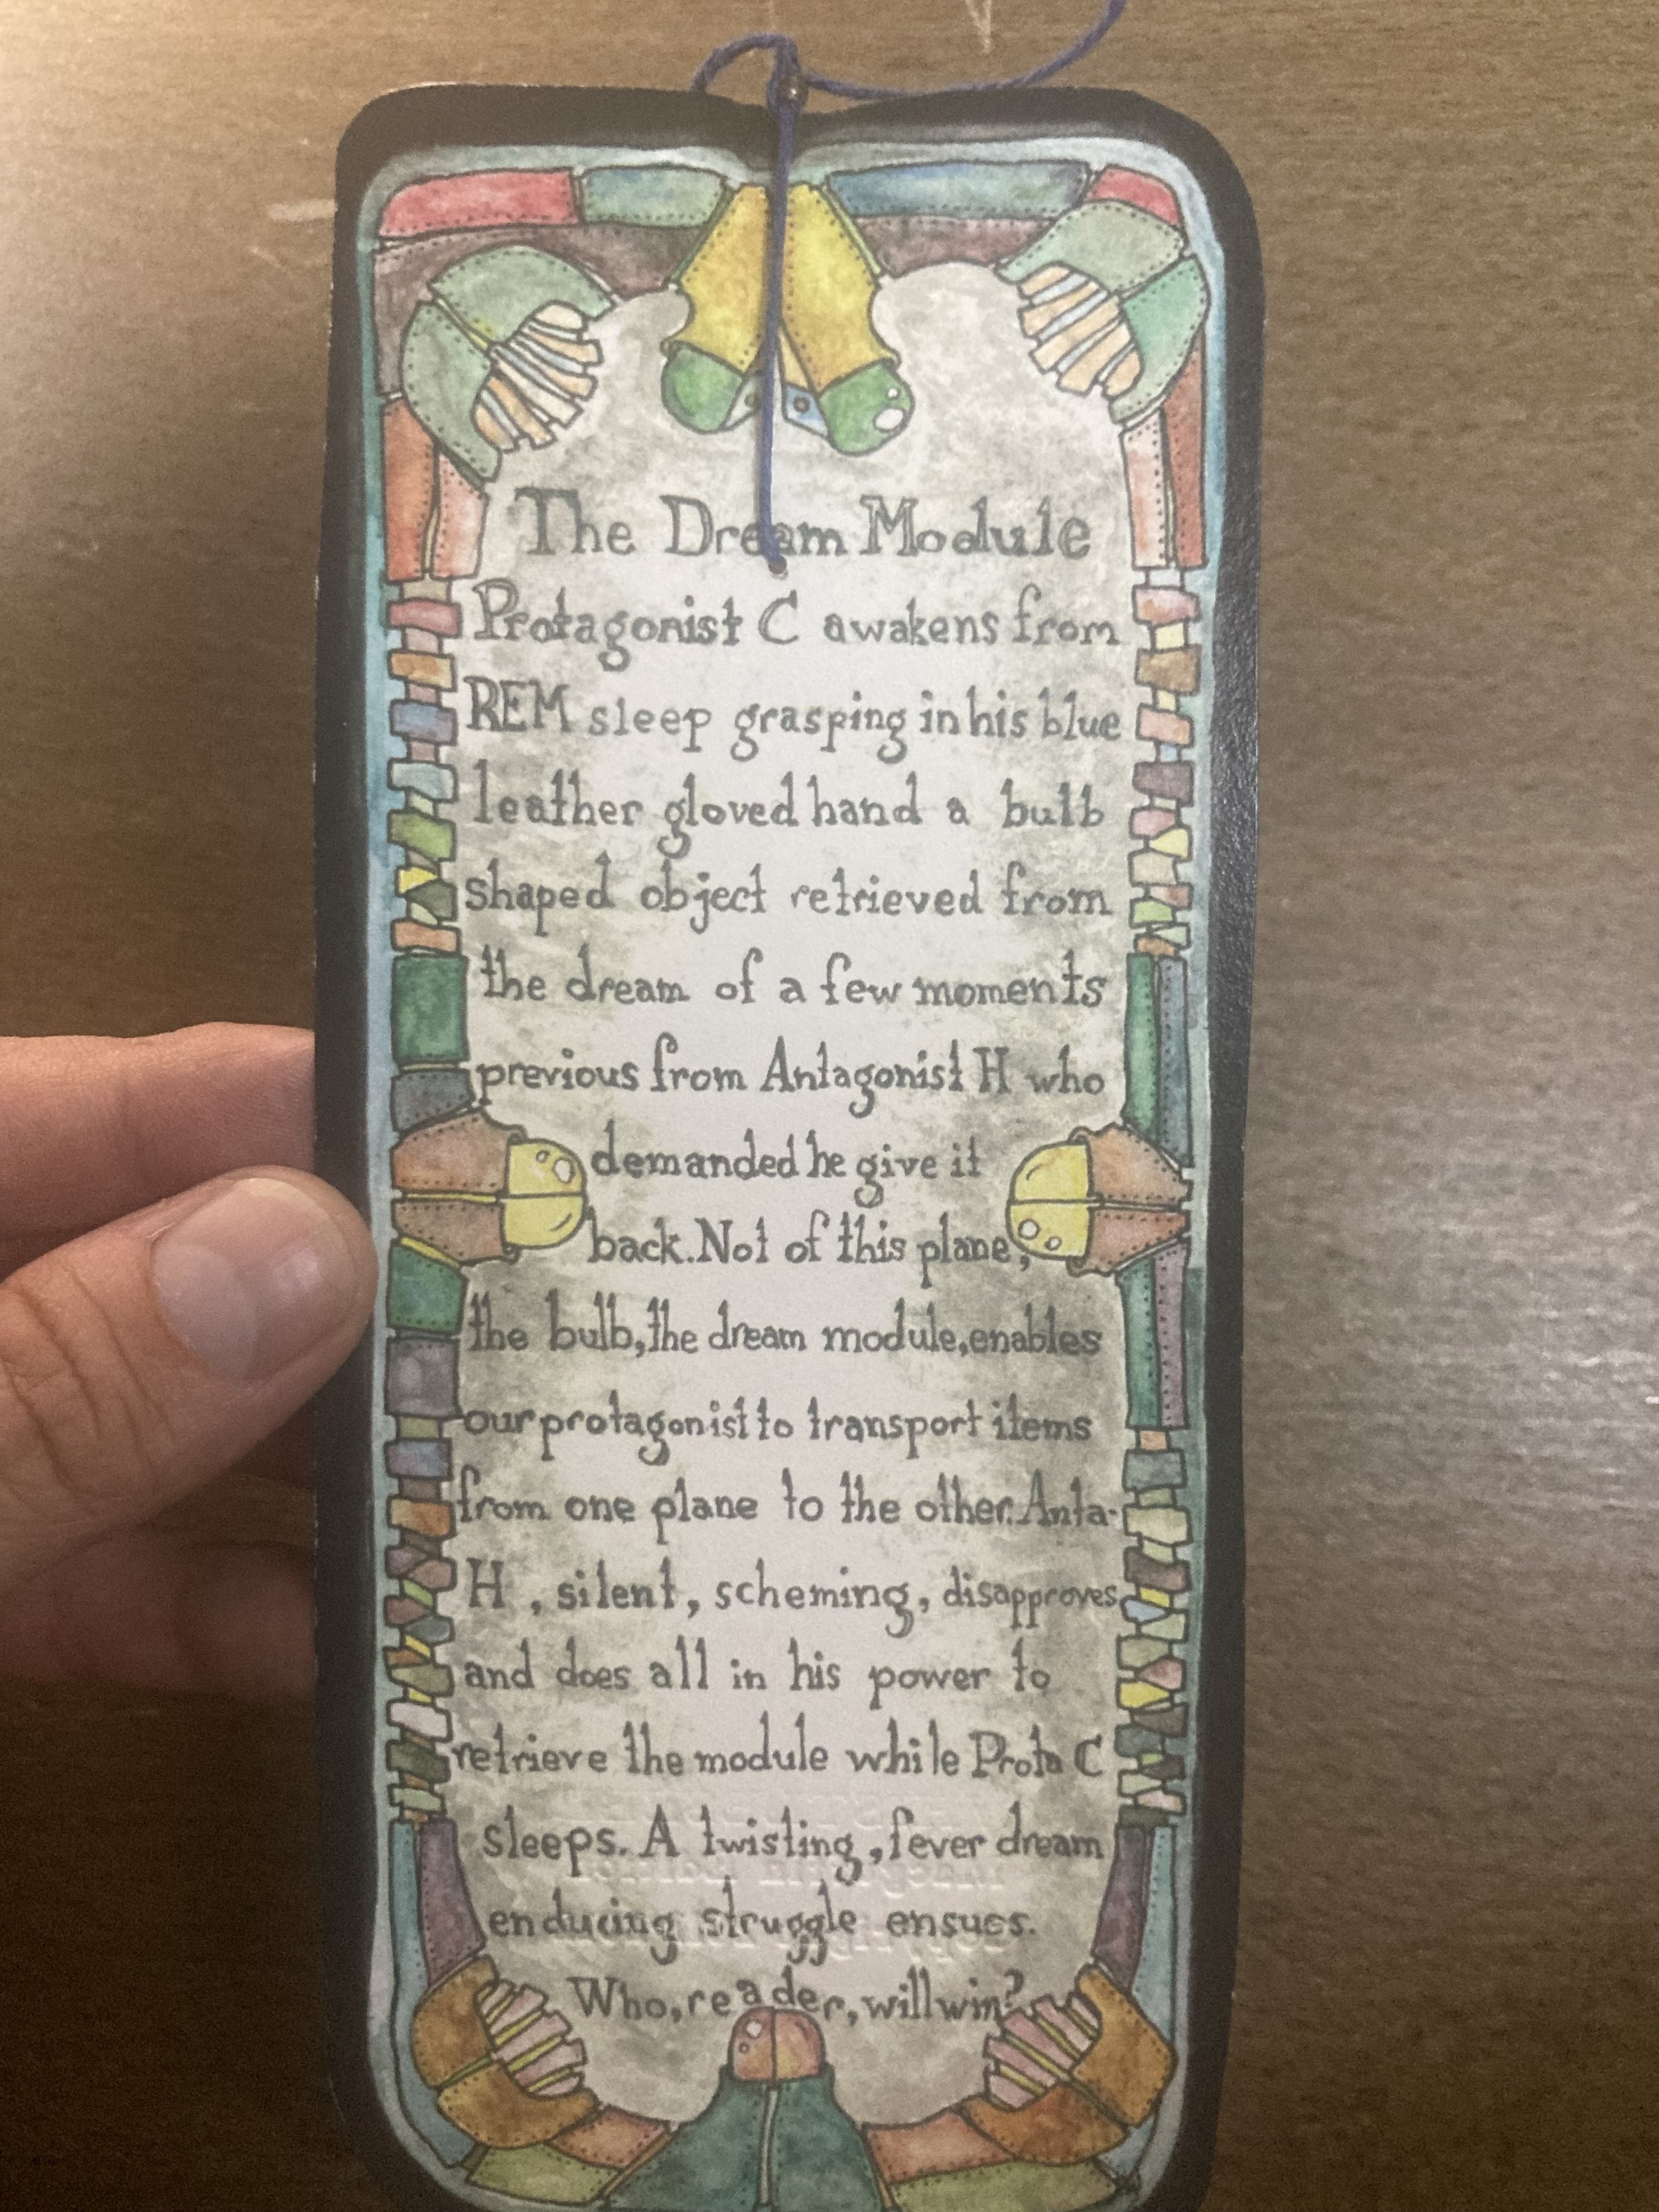 The Dream Module
Protagonist C awakens from
REM sleep grasping in his blue
leather gloved hand a bulb
shaped object retrieved from
the dream of a few moments
previous from Antagonist H who
demanded he give it
back. Not of this plane,
the bulb, the dream module, enables
our protagonist to transport items
from one plane to the other. Anta-
H, silent, scheming, disapproves
and does all in his power to
retrieve the module while Prota C
sleeps. A twisting, fever dream
enducing struggle ensues.
Who, reader, will win?